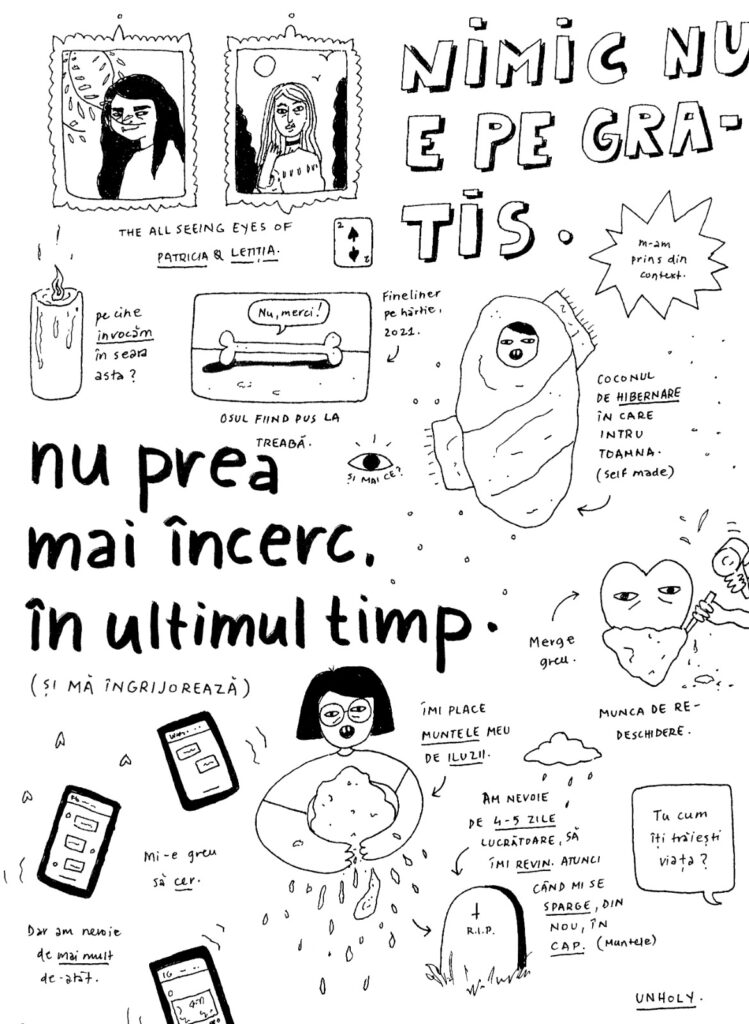 NIMIC NU
E PE GRA-
TIS.
THE ALL SEEING EYES OF
PATRICIA & LETIȚIA.
2
2
m-am
prins din
context.
pe cine
invocăm
în seara
asta?
Nu, merci!
OSUL FIIND PUS LA
TREABĂ.
Fineliner
pe hârtie,
2021.
COCONUL
DE HIBERNARE
ÎN CARE
INTRU
TOAMNA.
(self made)
ȘI MAI CE?
nu prea
mai încerc,
în ultimul timp.
(ȘI MĂ ÎNGRIJOREAZĂ)
Merge
greu.
MUNCA DE RE-
DESCHIDERE.
ÎMI PLACE
MUNTELE MEU
DE ILUZII.
Mi-e greu
să cer.
Dar am nevoie
de mai mult
de-atât.
IG
AM NEVOIE
DE 4-5 ZILE
LUCRĂTOARE, SĂ
ÎMI REVIN. ATUNCI
CÂND MI SE
SPARGE, DIN
NOU, ÎN
CAP. (Muntele)
R.I.P.
Tu cum
îți trăiești
viața?
UNHOLY.